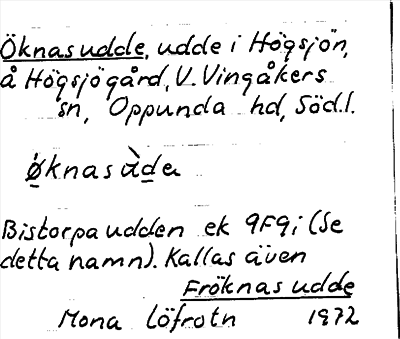 Öknasudde, udde i Högsjön,
å Högsjögård, V. Vingåkers
sn, Oppunda hd, Södl.
ǿknasùde
Bistorpaudden ek 9F9i (Se
detta namn). Kallas även
Fröknasudde
Mona Löfrotn 1972